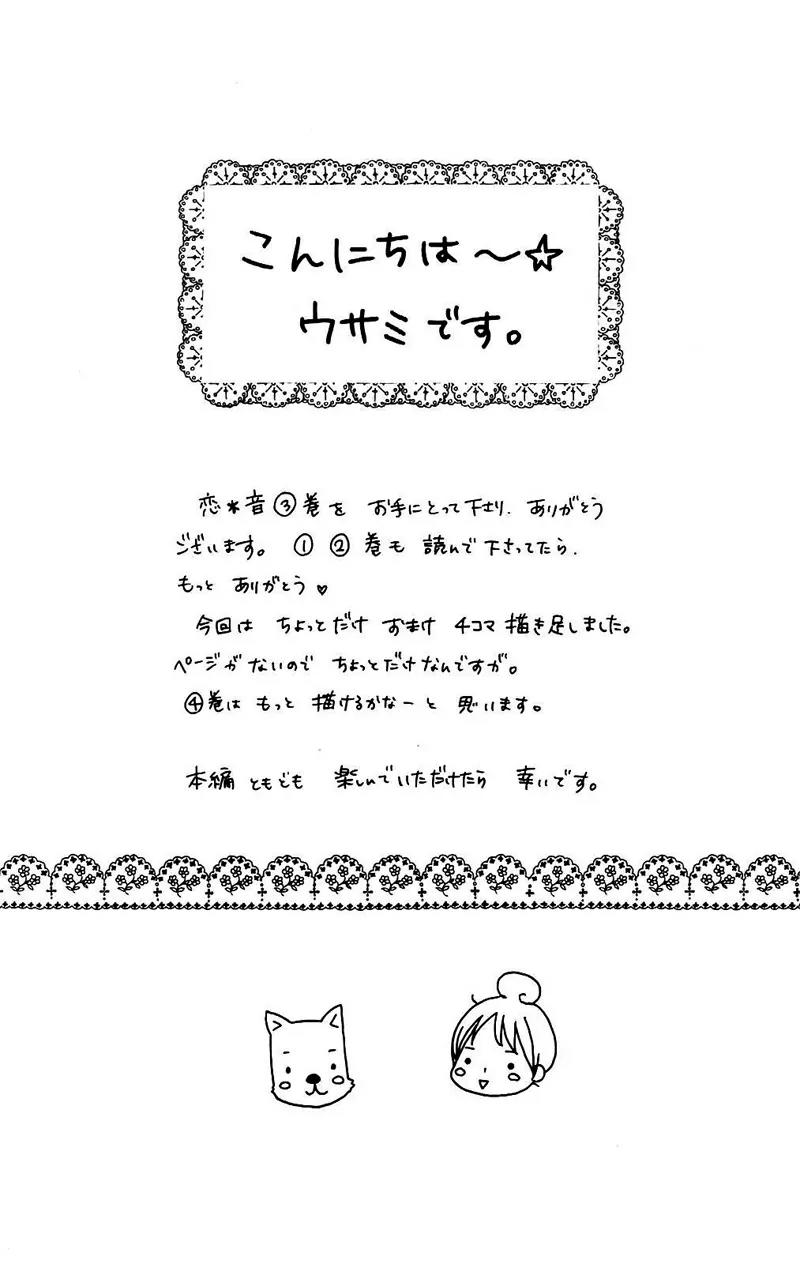 こんにちは～☆
ウサミです。
恋*音③巻を お手にとって下さり. ありがとう
ございます。 ① ② 巻も 読んで下さってたら.
もっと ありがとう♡
今回は ちょっとだけ おまけ 4コマ 描き足しました。
ページがないので ちょっとだけなんですが。
④巻は もっと 描けるかなーと 思います。
本編ともども 楽しんでいただけたら 幸いです。